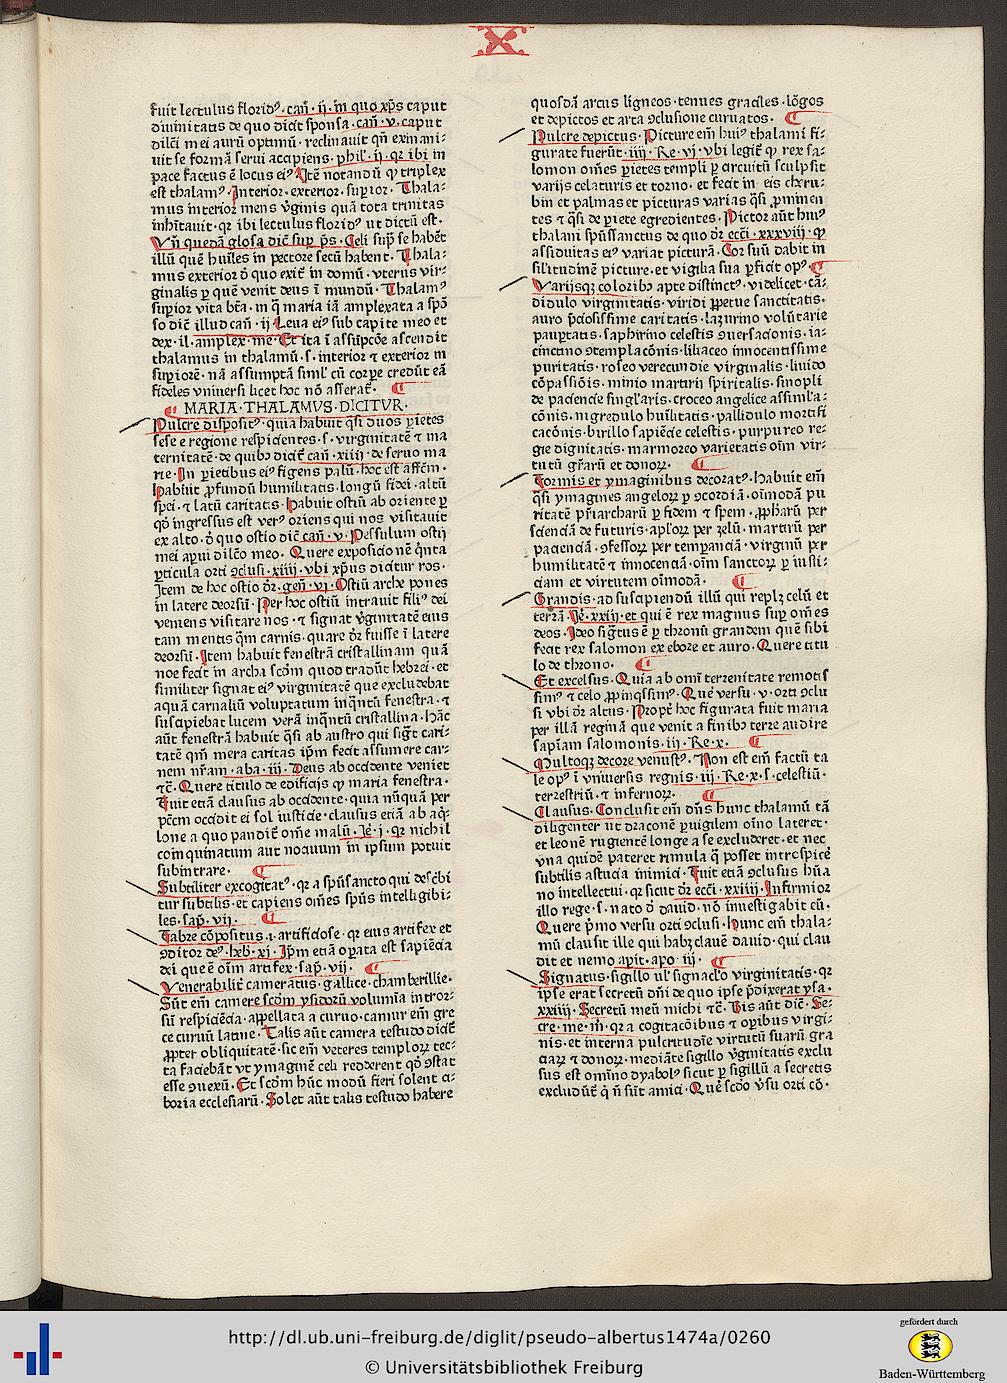 X
fuit lectulus floridꝰ. cañ. ij. in quo xp̄s caput
diuinitatis de quo dicit sponsa. cañ. v. caput
dilc̄i mei aurū optimū. reclinauit qn̄ exinani-
uit se formā serui accipiens. phil'. ij. qr ibi in
pace factus ē locus eiꝰ. Itē notandū ꝙ triplex
est thalamꝰ. Interior. exterior. supīor. Thala-
mus interior mens v̄ginis quā tota trinitas
inh̄itauit. qr ibi lectulus floridꝰ ut dictū est.
Vn̄ quedā glosa dic̄ sup̄ p̄s. Celi sup̄ se habēt
illū quē huīles in pectore secū habent. Thala-
mus exterior ō quo exit̄ in domū. vterus vir-
ginalis ꝑ quē venit deus ī mundū. Thalamꝰ
supīor vita bt̄a. in q̄ maria iā amplexata a spō
so dic̄ illud cañ. ij Leua eiꝰ sub capite meo et
dex. il. amplex. me. Et ita ī assūpcōe ascendit
thalamus in thalamū. s. interior ⁊ exterior in
supīorē. nā assumptā siml' cū corꝑe credūt eā
fideles vniuersi licet hoc nō asserat̄.
MARIA. THALAMVS. DICITVR.
Pulcre dispositꝰ. quia habuit q̄si duos ꝑietes
sese e regione respicientes. s. virginitatē ⁊ ma
ternitatē. de quibꝰ dicit̄ cañ. xiiij. de seruo ma
rie. In ꝑietibus eiꝰ figens palū. hoc est affēm.
habuit ꝓfundū humilitatis. longū fidei. altū
spei. ⁊ latū caritatis. habuit ostiū ab oriente ꝑ
qd̄ ingressus est verꝰ oriens qui nos visitauit
ex alto. ō quo ostio dic̄ cañ. v. Pessulum ostij
mei aꝑui dilc̄o meo. Quere exposicionē q̄nta
ꝑticula orti ꝯclusi. xiiij. vbi xp̄us dicitur ros.
Item de hoc ostio dr̄. geñ. vj. Ostiū arche pones
in latere deorsū. Per hoc ostiū intrauit filiꝰ dei
veniens visitare nos. ⁊ signat v̄ginitatē eius
tam mentis q̄m carnis. quare dr̄ fuisse ī latere
deorsū. Item habuit fenestrā cristallinam quā
noe fecit in archa scd̄m quod tradūt hebrei. et
similiter signat eiꝰ virginitatē que excludebat
aquā carnaliū voluptatum inq̄ntū fenestra. ⁊
suscipiebat lucem verā inq̄ntū cristallina. Hāc
aūt fenestrā habuit q̄si ab austro qui sigt̄ cari-
tatē qm̄ mera caritas ip̄m fecit assumere car-
nem nr̄am. aba. iij. Deus ab occidente veniet
⁊c̄. Quere titulo de edificijs ꝙ maria fenestra.
Fuit etiā clausus ab occidente. quia nūquā per
pc̄m occidit ei sol iusticie. clausus etiā ab aq̄-
lone a quo pandit̄ om̄e malū. Ie. j. qr nichil
coinquinatum aut noxium in ipsum potuit
subintrare.
Subtiliter excogitatꝰ. qr a spūsancto qui desc̄bi
tur subtilis. et capiens om̄es spūs intelligibi-
les. sap̄. vij.
Fabre cōpositus. i. artificiose. qr eius artifex et
ꝯditor deꝰ. heb̄. xj. Ip̄m etiā oꝑata est sapiēcia
dei que ē oīm artifex. sap̄. vij.
Venerabilit̄ cameratus. gallice. chamberillie.
Sūt em̄ camere scd̄m ysidorū volumīa intror-
sū respiciēcia. appellata a curuo. camur em̄ gre
ce curuū latine. Talis aūt camera testudo dicit̄
ꝓpter obliquitatē. sic em̄ veteres temploꝝ tec-
ta faciebāt vt ymaginē celi redderent qd̄ ꝯstat
esse ꝯuexū. Et scd̄m hūc modū fieri solent ci-
boria ecclesiarū. Solet aūt talis testudo habere
quosdā arcus ligneos. tenues graciles. lōgos
et depictos et arta ꝯclusione curuatos.
Pulcre depictus. Picture em̄ huiꝰ thalami fi-
gurate fuerūt. iiij. Re. vj. vbi legit̄ ꝙ rex sa-
lomon om̄es ꝑietes templi ꝑ circuitū sculpsit
varijs celaturis et torno. et fecit in eis cheru-
bin et palmas et picturas varias q̄si ꝓminen
tes ⁊ q̄si de ꝑiete egredientes. Pictor aūt huiꝰ
thalami spūssanctus de quo dr̄ ecc̄i. xxxviij. ꝙ
assiduitas eiꝰ variat picturā. Cor suū dabit in
sil'itudinē picture. et vigilia sua ꝑficit opꝰ.
Varijsqꝫ coloribꝰ apte distinctꝰ. videlicet. cā-
didulo virginitatis. viridi ꝑpetue sanctitatis.
auro p̄ciosissime caritatis. lazurino volūtarie
pauꝑtatis. saphirino celestis ꝯuersacionis. ia-
cinctino ꝯtemplacōnis. liliaceo innocentissime
puritatis. roseo verecundie virginalis. liuido
cōpassiōis. minio martirij spiritalis. sinopli
de paciencie singl'aris. croceo angelice assimil'a-
cōnis. nigredulo huīlitatis. pallidulo mortifi
cacōnis. birillo sapiēcie celestis. purpureo re-
gie dignitatis. marmoreo varietatis oīm vir-
tutū gr̄arū et donoꝝ.
Formis et ymaginibus decoratꝰ. habuit em̄
q̄si ymagines angeloꝝ ꝑ ꝯcordiā. oīmodā pu
ritatē pr̄iarcharū ꝑ fidem ⁊ spem. ꝓpharū per
scienciā de futuris. apl'oꝝ per zelū. martirū per
pacienciā. ꝯfessoꝝ per temꝑanciā. virginū per
humilitatē ⁊ innocenciā. oīm sanctoꝝ ꝑ iusti-
ciam et virtutem oīmodā.
Grandis. ad suscipiendū illū qui replꝫ celū et
terrā. Ie. xxiij. et qui ē rex magnus sup̄ om̄es
deos. Ideo siḡtus ē ꝑ thronū grandem quē sibi
fecit rex salomon ex ebore et auro. Quere titu
lo de throno.
Et excelsus. Quia ab omī terrenitate remotis
simꝰ ⁊ celo ꝓpinqssimꝰ. Que versu. v. orti ꝯclu
si vbi dr̄ altus. Propt̄ hoc figurata fuit maria
per illā reginā que venit a finibꝰ terre audire
sapīam salomonis. iij. Re. x.
Multoqꝫ decore venustꝰ. Non est em̄ factū ta
le opꝰ ī vniuersis regnis. iij. Re. x. s. celestiū.
terrestriū. ⁊ infernoꝝ.
Clausus. Conclusit em̄ dn̄s hunc thalamū tā
diligenter ut draconē ꝑuigilem oīno lateret.
et leonē rugientē longe a se excluderet. et nec
vna quidē pateret rimula q̄ posset introspicē
subtilis astucia inimici. Fuit etiā ꝯclusus hūa
no intellectui. qr sicut dr̄ ecc̄i. xxiiij. Infirmior
illo rege. s. nato ō dauid. nō inuestigabit eū.
Quere p̄mo versu orti ꝯclusi. hunc em̄ thala-
mū clausit ille qui habꝫ clauē dauid. qui clau
dit et nemo apit. apo. iij.
Signatus. sigillo ul' signacl'o virginitatis. qr
ipse erat secretū dn̄i de quo ipse p̄dixerat ysa.
xxiiij. Secretū meū michi ⁊c̄. Bis aūt dic̄. Se-
cre. me. m̄. qr a cogitacōibus ⁊ oꝑibus virgi-
nis. et interna pulcritudīe virtutū suarū gra
ciaꝝ ⁊ donoꝝ. mediāte sigillo v̄ginitatis exclu
sus est omīno dyabolꝰ sicut ꝑ sigillū a secretis
excludūt̄ q̄ n̄ sūt amici. Que scd̄o v̄su orti cō.
http://dl.ub.uni-freiburg.de/diglit/pseudo-albertus1474a/0260
© Universitätsbibliothek Freiburg
gefördert durch
Baden-Württemberg